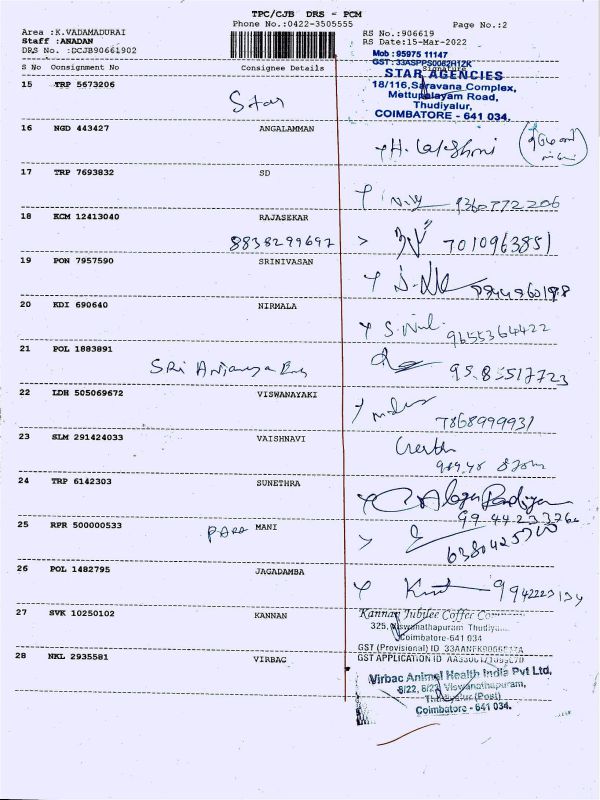 TPC/CJB DRS - PCM
Phone No.:0422-3505555 Page No.:2
Area :K.VADAMADURAI RS No.:906619
Staff :ANADAN RS Date:15-Mar-2022
DRS No. :DCJB90661902
Mob : 95975 11147
S No Consignment No Consignee Details Signature
STAR AGENCIES
18/116,Saravana Complex,
Mettupalayam Road,
Thudiyalur,
COIMBATORE - 641 034.
15 TRP 5673206
Star
16 NGD 443427 ANGALAMMAN
H. Lakshmi
17 TRP 7693832 SD
9360772206
18 KCM 12413040 RAJASEKAR
8838299697 7010963851
19 PON 7957590 SRINIVASAN
20 KDI 690640 NIRMALA
9655364422
21 POL 1883891
SRi Anjaneya
95.85517723
22 LDH 505069672 VISWANAYAKI
7868999931
23 SLM 291424033 VAISHNAVI
24 TRP 6142303 SUNETHRA
25 RPR 500000533 PARA MANI
26 POL 1482795 JAGADAMBA
27 SVK 10250102 KANNAN
Kannan Jubilee Coffee
325, Viswanathapuram
Coimbatore-641 034
GST (Provisional) ID
GST APPLICATION ID
28 NKL 2935581 VIRBAC
Virbac Animal Health India Pvt Ltd.
Viswanathapuram,
Thudiyalur (Post)
Coimbatore - 641 034.